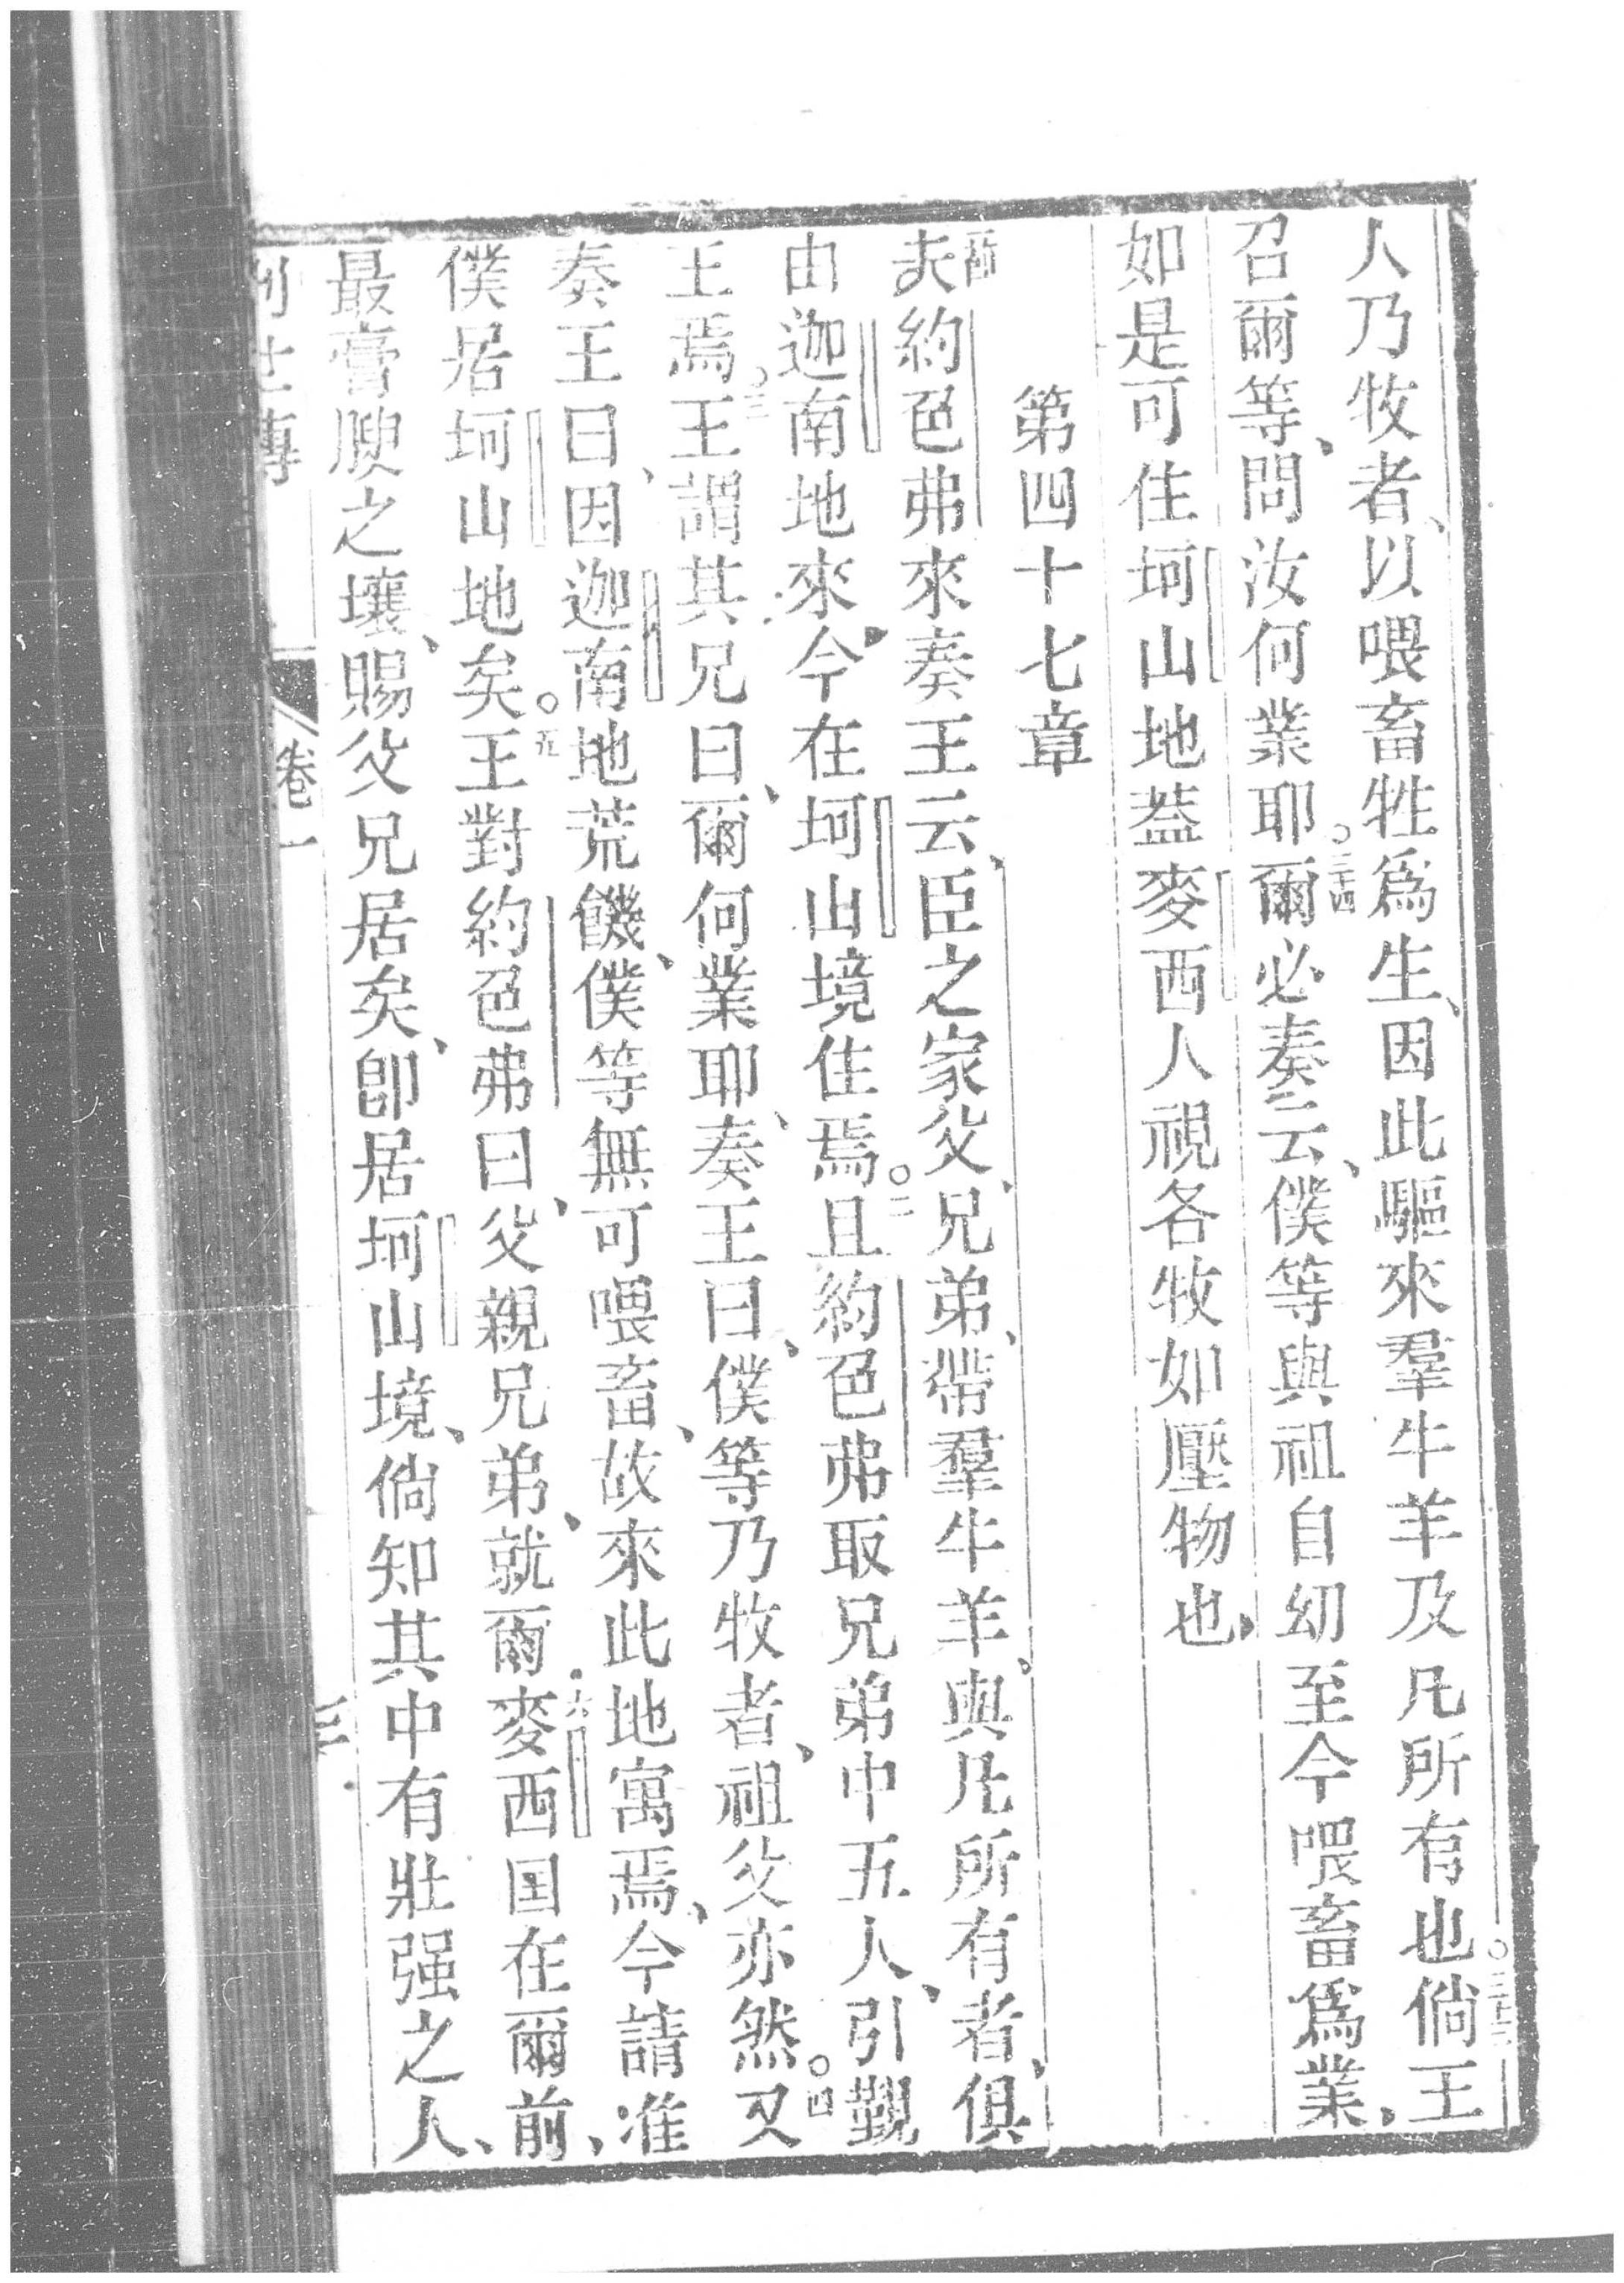 人乃牧者、以喂畜牲爲生、因此驅來羣牛羊及凡所有也○三十三倘王
召爾等、問汝何業耶○三十四爾必奏云、僕等與祖自幼至今喂畜爲業、
如是可住坷山地葢麥西人視各牧如壓物也、
第四十七章
一節夫約色弗來奏王云、臣之家父、兄弟、帶羣牛羊、與凡所有者、俱
由迦南地來、今在坷山境住焉。○二且約色弗取兄弟中五人、引覲
王焉○三王謂其兄曰、爾何業耶、奏王曰、僕等乃牧者、祖父亦然。○四又
奏王曰、因迦南地荒饑、僕等無可喂畜、故來此地寓焉、今請准
僕居坷山地矣。○五王對約色弗曰、父親兄弟、就爾○六麥西国在爾前、
最膏腴之壤、賜父兄居矣、卽居坷山境、倘知其中有壯强之人、
卷一